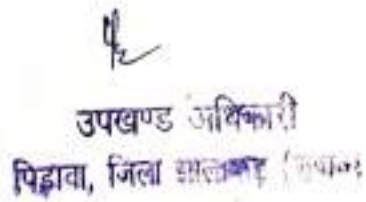 उपखण्ड अधिकारी
पिड़ावा, जिला झालावाड़